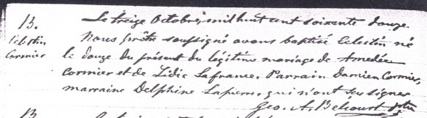 13.
Celestin
Cormier
Le treize Octobre, mil huit cent soixante douze
Nous prêtre soussigné avons baptisé Celestin né
le douze du présent du légitime mariage de Amedée
Cormier et de Lidie Lafrance. Parrain Damien Cormier,
marraine Delphine qui n'ont su signer
Geo. A. Belcourt ptre
13